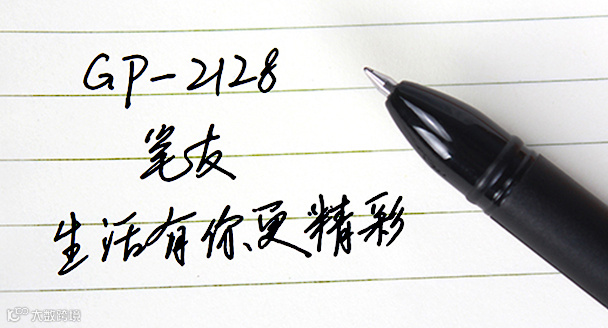 GP-2128
笔友
生活有你、更精彩
大数跨境